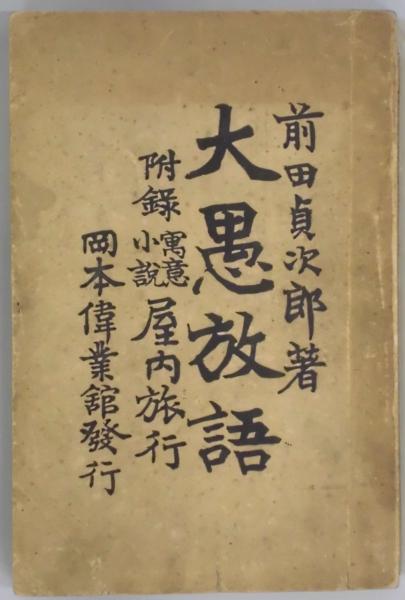 前田貞次郎著
大愚放語
附錄 寓意小説 屋内旅行
岡本偉業館發行